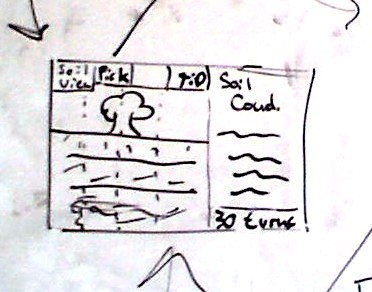 Soil
View
Pick
Soil
Cond.
30 turns